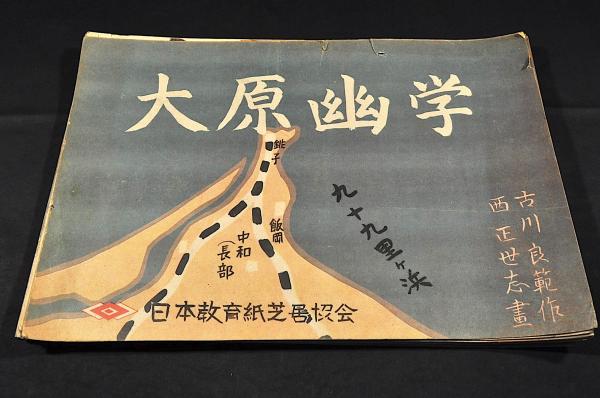 大原幽学
銚子
飯岡
中和
(長部)
九十九里ヶ浜
古川良範作
西正世志畫
日本教育紙芝居協会